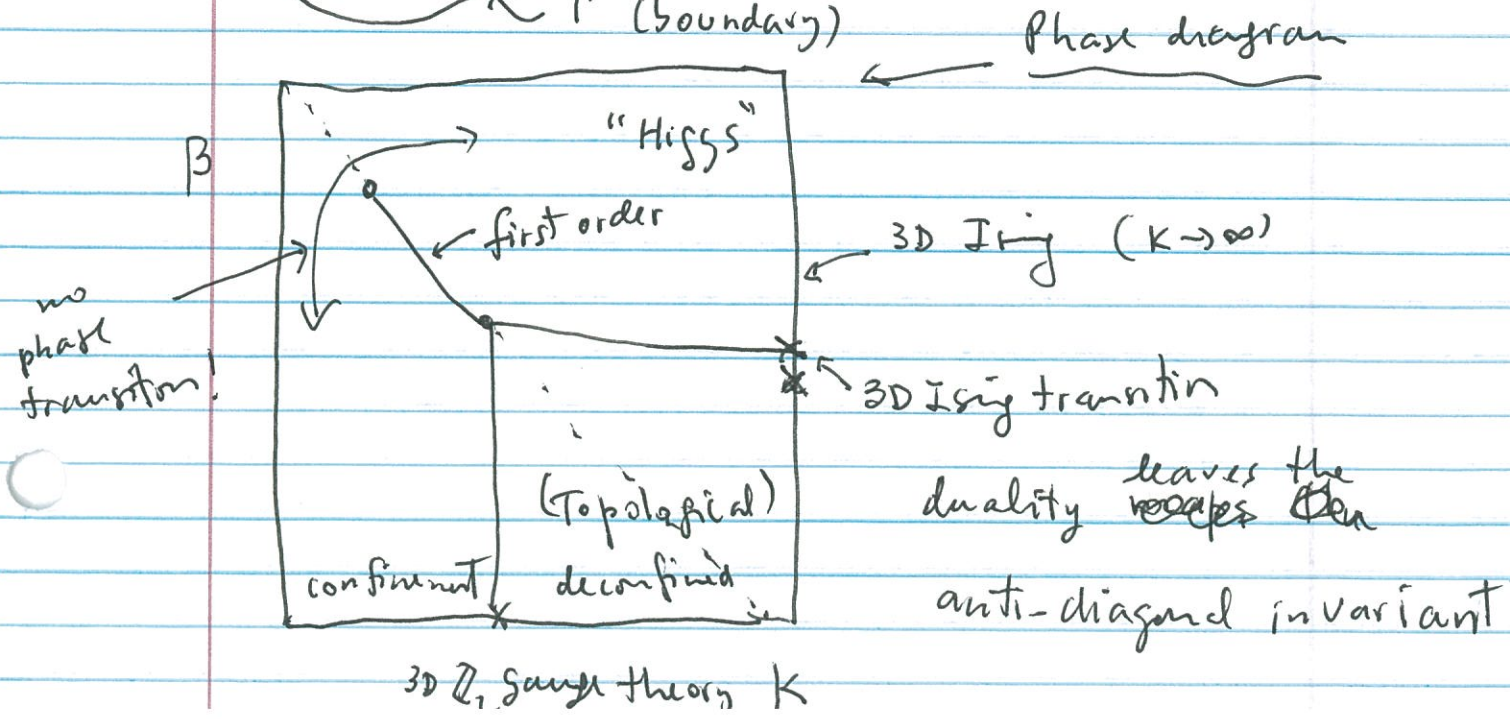 (boundary)
Phase diagram
β
"Higgs"
first order
3D Ising (K→∞)
no
phase
transition!
3D Ising transitin
duality leaves the
anti-diagonal invariant
(Topological)
confinement
deconfined
3D Z₂ gauge theory K